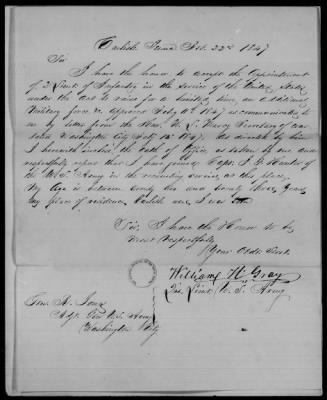 Carlisle Penna Feb. 22d 1847
Sir
I have the honor to accept the appointment
of 2 Lieut. of Infantry in the service of the United States
under the act to raise for a limited time, an additional
Military force &c approved Feby 11th 1847 as communicated to
me by letter from the Hon. W. L. Marcy Secretary of War
dated Washington City Feby 1847. As directed by him
I herewith inclose the oath of Office, as taken by me and
respectfully report that I have joined Capt.
of the U.S. Army in the recruiting service, at this place.
My Age is between twenty two and twenty three, years
my place of residence Carlisle and I was
Sir, I have the Honor to be
most Respectfully
Your Obdt. Servt.
William H. Gray
2d. Lieut. U. S. Army
Gen. R. Jones
Adjt. Gen U.S. Army
Washington City